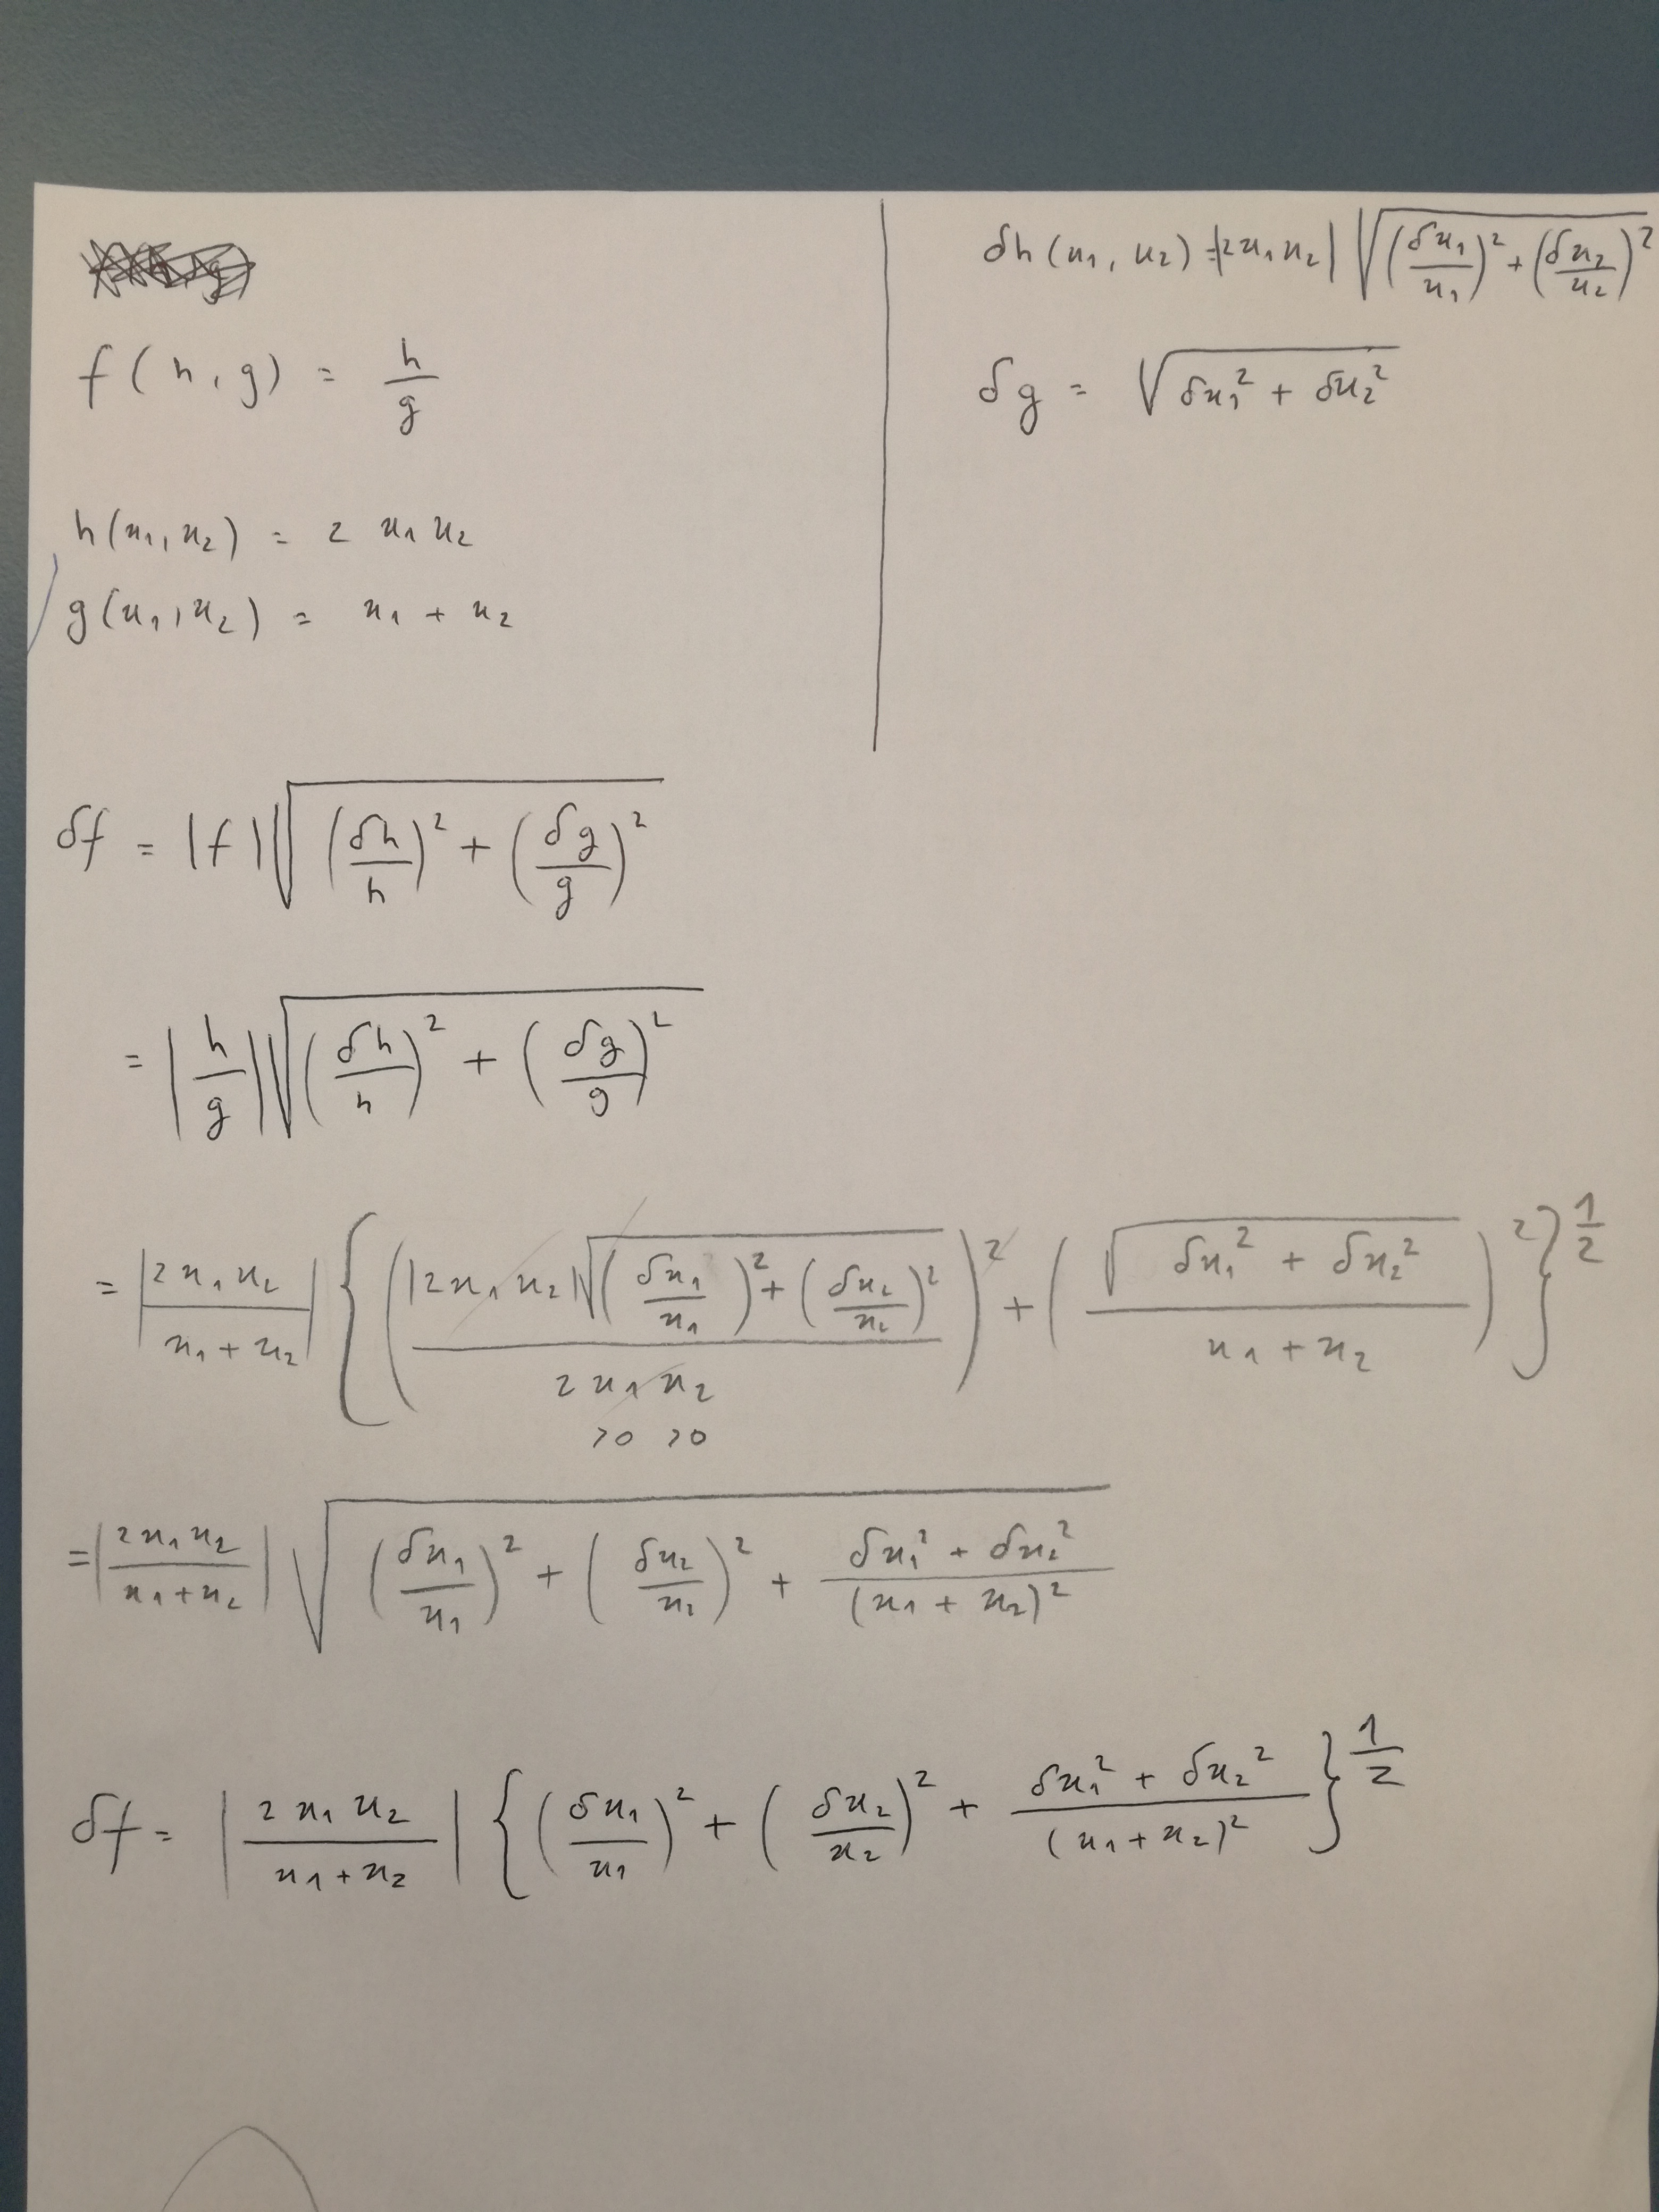 f(h,g) = h/g
h(x₁,x₂) = 2 x₁ x₂
g(x₁,x₂) = x₁ + x₂
δh(x₁, x₂) = |2x₁x₂| √((δx₁/x₁)² + (δx₂/x₂)²)
δg = √(δx₁² + δx₂²)
δf = |f| √((δh/h)² + (δg/g)²)
= |h/g| √((δh/h)² + (δg/g)²)
= |2x₁x₂/(x₁+x₂)| {(|2x₁x₂|√((δx₁/x₁)² + (δx₂/x₂)²)/(2x₁x₂))² + (√(δx₁² + δx₂²)/(x₁+x₂))²}^(1/2)
>0 >0
= |2x₁x₂/(x₁+x₂)| √((δx₁/x₁)² + (δx₂/x₂)² + (δx₁² + δx₂²)/(x₁+x₂)²)
δf = |2x₁x₂/(x₁+x₂)| {(δx₁/x₁)² + (δx₂/x₂)² + (δx₁² + δx₂²)/(x₁+x₂)²}^(1/2)